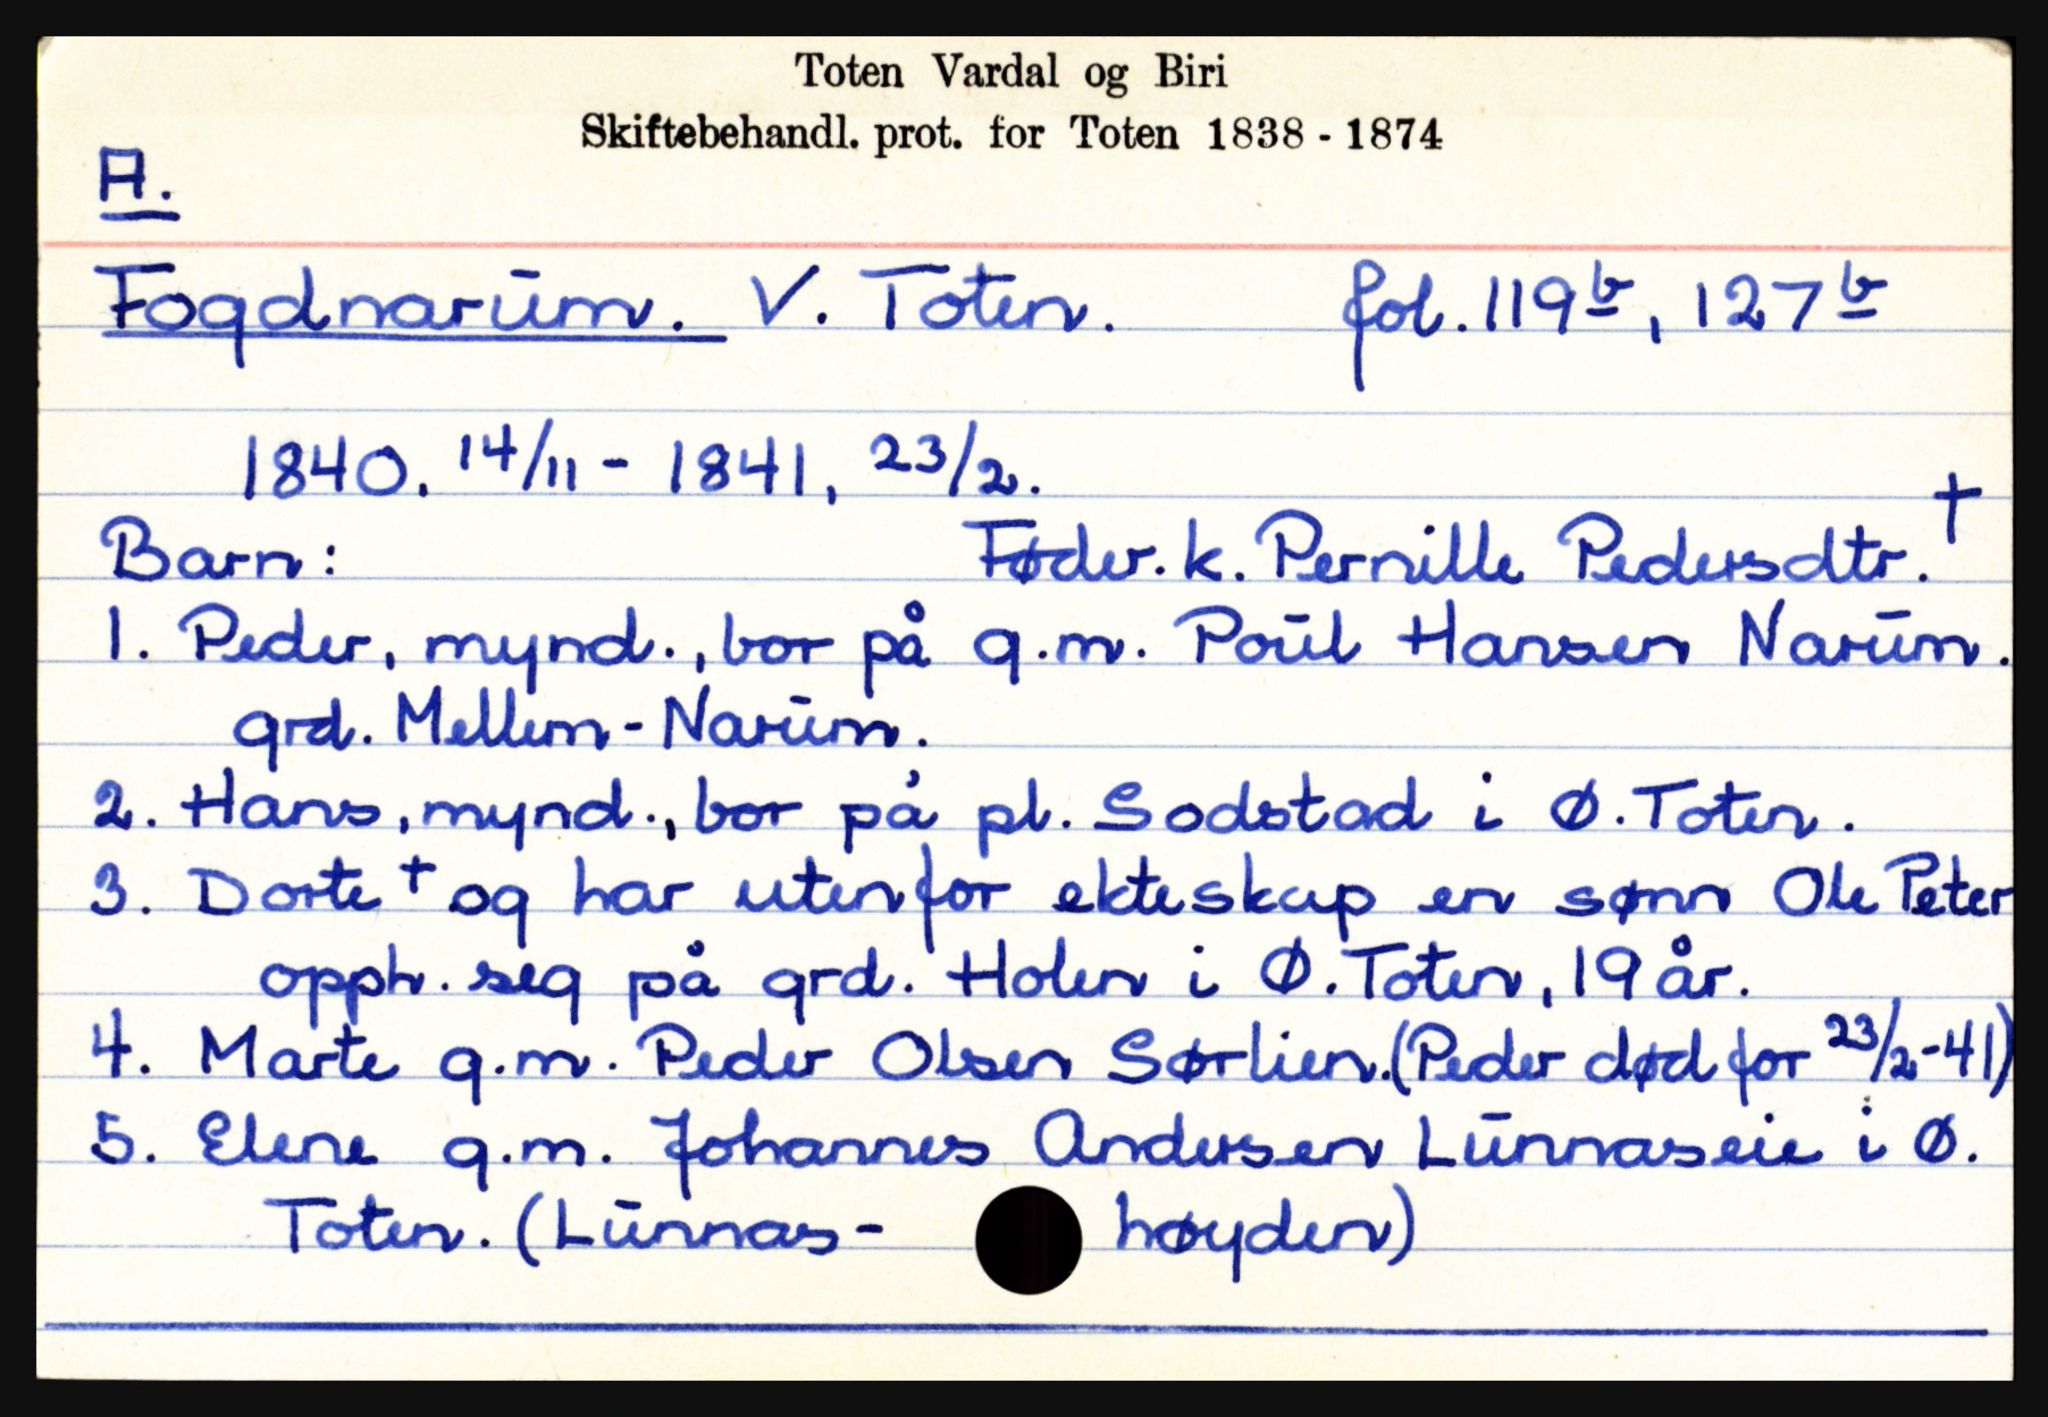 Toten Vardal og Biri
Skiftebehandl. prot. for Toten 1838 - 1874
A.
Fogdnarūm. V. Toten. fol. 119b, 127b
1840. 14/11 - 1841, 23/2.
Barn: Føder.k. Pernille Pedersdtr. †
1. Peder, mynd., bor på g.m. Poūl Hansen Narūm.
grd. Mellem-Narūm.
2. Hans, mynd., bor på pl. Sodstad i Ø. Toten.
3. Dorte † og har utenfor ekteskap en sønn Ole Peter
opph. seg på grd. Holen i Ø. Toten, 19 år.
4. Marte g.m. Peder Olsen Sørlien. (Peder død før 23/2-41)
5. Elene g.m. Johannes Andersen Lūnnaseie i Ø.
Toten. (Lūnnas- høyden)